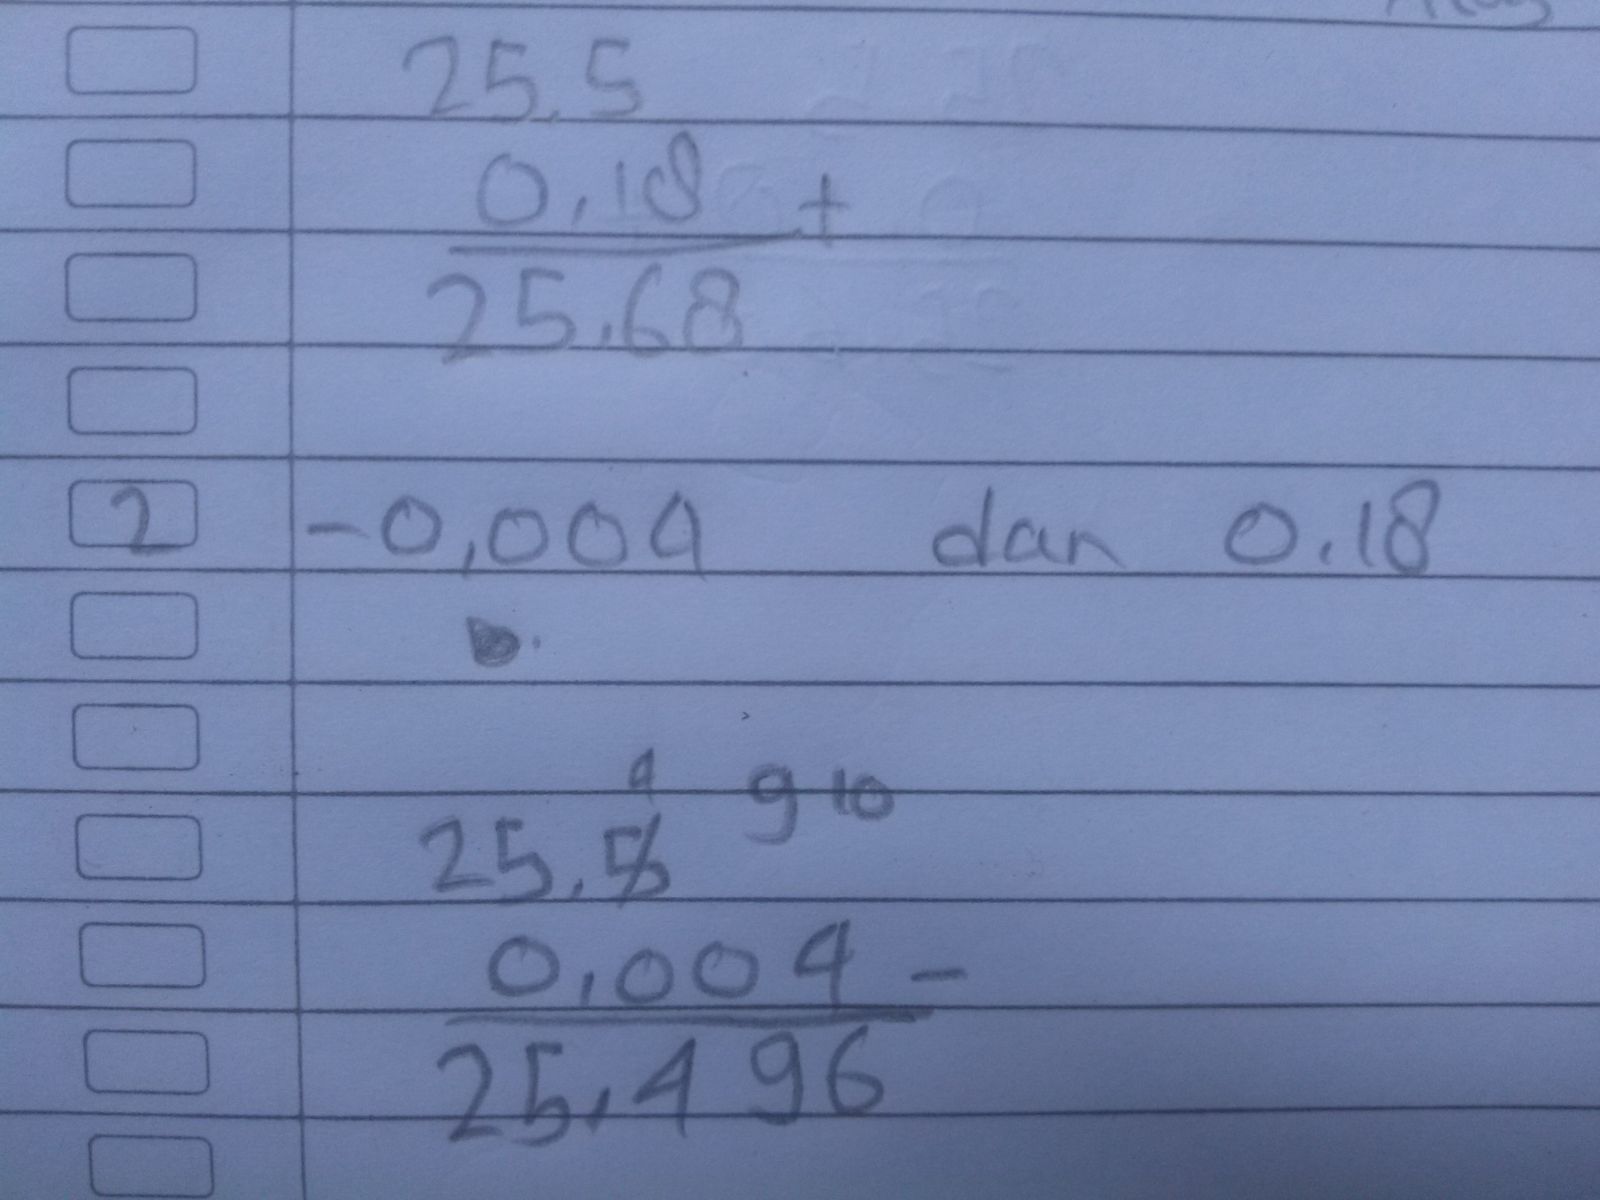 25,5
0,18 +
25,68
2 -0,004 dan 0.18
4 9 10
25,5
0,004 -
25,496